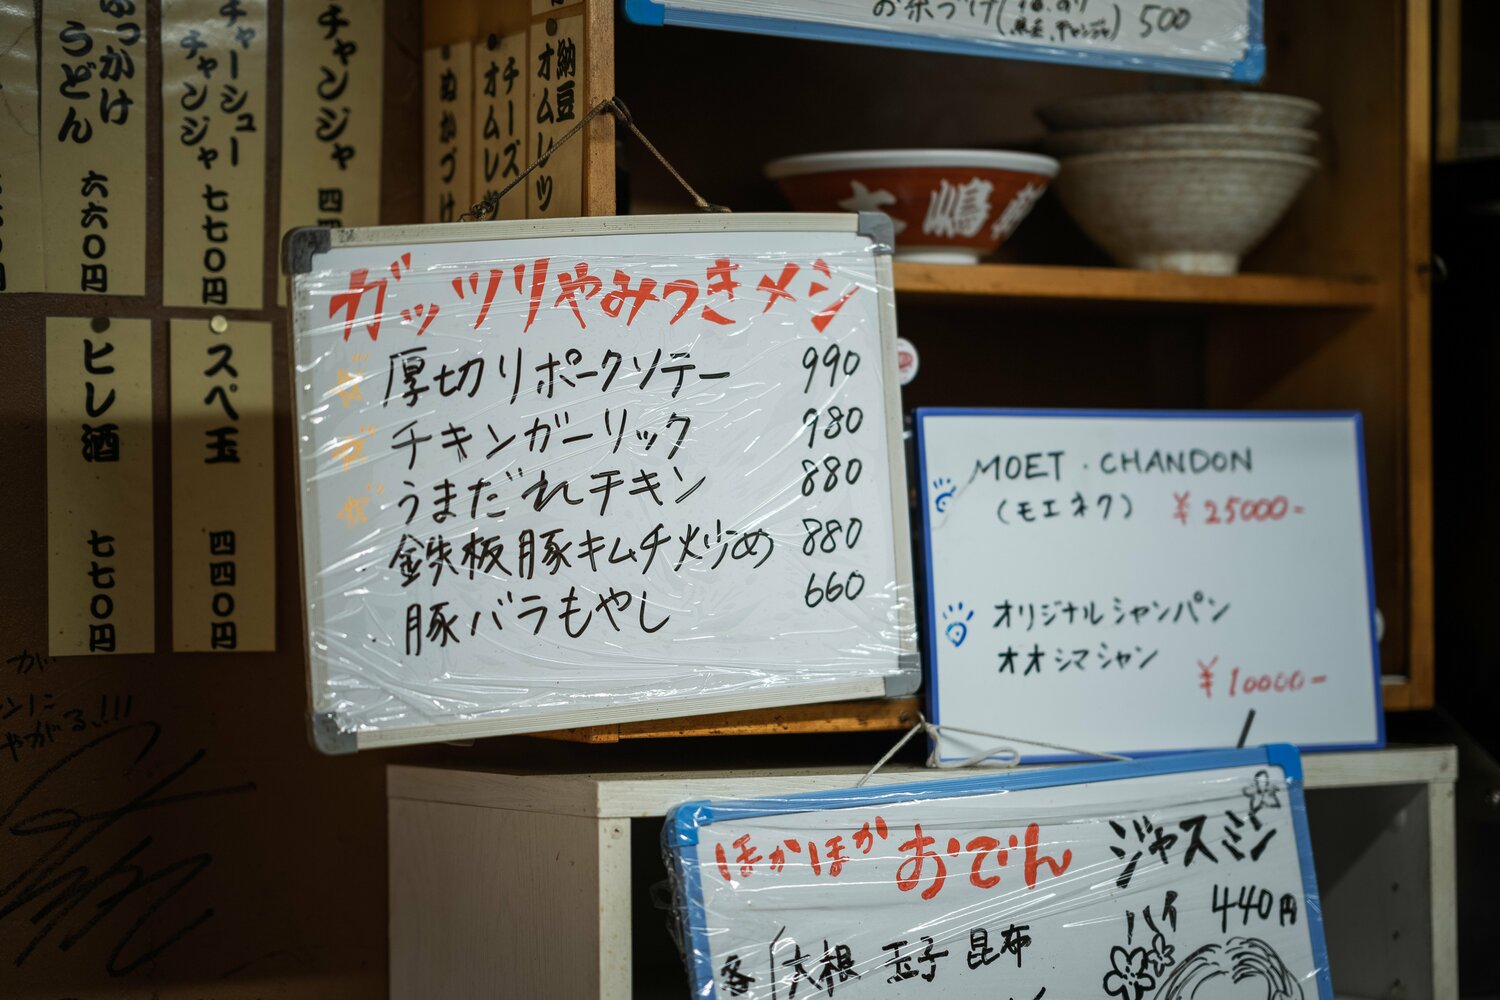 ぶっかけ
うどん 六六〇円
チャーシュー
チャンジャ 七七〇円
チャンジャ
ぬかづけ
チーズ
オムレツ
納豆
オムレツ
ヒレ酒 七七〇円
スペ玉 四四〇円
お茶づけ
500
ガッツリやみつきメシ
厚切りポークソテー 990
チキンガーリック 980
うまだれチキン 880
鉄板豚キムチ炒め 880
豚バラもやし 660
MOET・CHANDON
(モエネク) ¥25000-
オリジナルシャンパン
オオシマシャン
¥10000-
ほかほかおでん
大根 玉子 昆布
ジャスミン
ハイ 440円